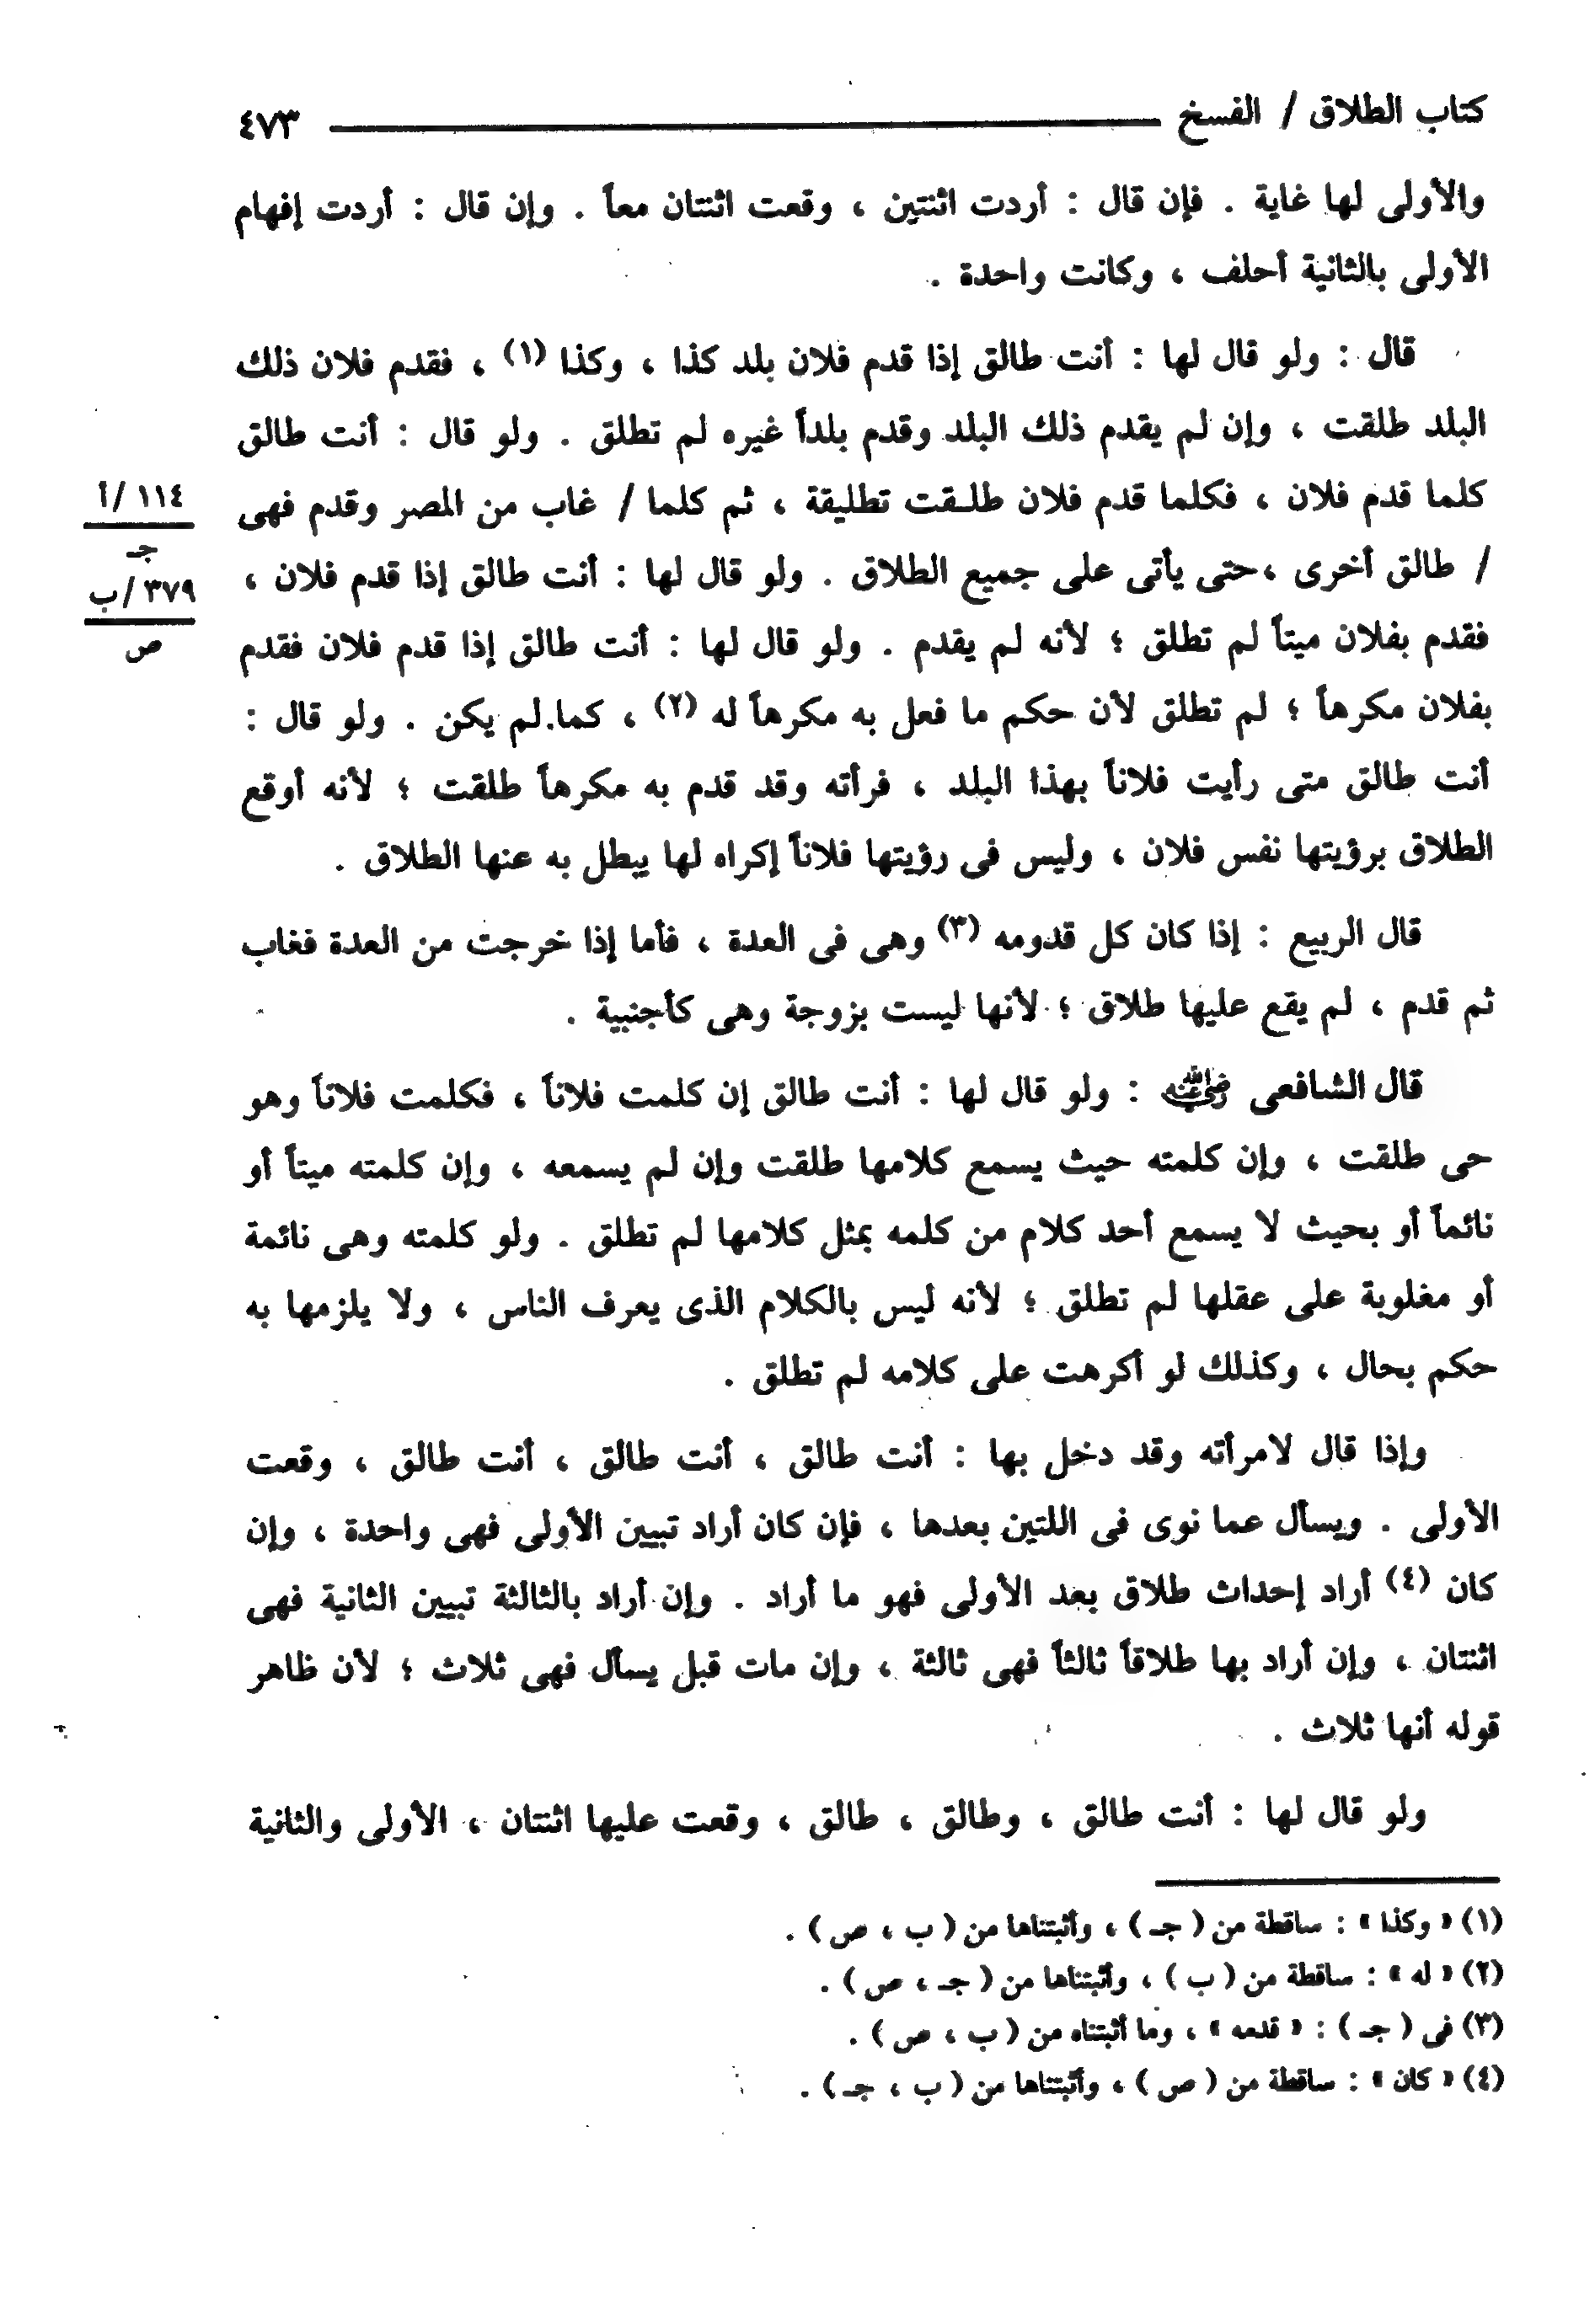 كتاب الطلاق / الفسخ ٤٧٣
والأولى لها غاية . فإن قال : أردت اثنتين ، وقعت اثنتان معاً . وإن قال : أردت إفهام
الأولى بالثانية أحلف ، وكانت واحدة .
قال : ولو قال لها : أنت طالق إذا قدم فلان بلد كذا ، وكذا (١) ، فقدم فلان ذلك
البلد طلقت ، وإن لم يقدم ذلك البلد وقدم بلداً غيره لم تطلق . ولو قال : أنت طالق
كلما قدم فلان ، فكلما قدم فلان طلـقت تطليقة ، ثم كلما / غاب من المصر وقدم فهى
١١٤ /أ
جـ
/ طالق أخرى ، حتى يأتى على جميع الطلاق . ولو قال لها : أنت طالق إذا قدم فلان ،
٣٧٩ /ب
ص
فقدم بفلان ميتاً لم تطلق ؛ لأنه لم يقدم . ولو قال لها : أنت طالق إذا قدم فلان فقدم
بفلان مكرهاً ؛ لم تطلق لأن حكم ما فعل به مكرهاً له (٢) ، كما لم يكن . ولو قال :
أنت طالق متى رأيت فلاناً بهذا البلد ، فرأته وقد قدم به مكرهاً طلقت ؛ لأنه أوقع
الطلاق برؤيتها نفس فلان ، وليس فى رؤيتها فلاناً إكراه لها يبطل به عنها الطلاق .
قال الربيع : إذا كان كل قدومه (٣) وهى فى العدة ، فأما إذا خرجت من العدة فغاب
ثم قدم ، لم يقع عليها طلاق ؛ لأنها ليست بزوجة وهى كأجنبية .
قال الشافعى رضي الله عنه : ولو قال لها : أنت طالق إن كلمت فلاناً ، فكلمت فلاناً وهو
حى طلقت ، وإن كلمته حيث يسمع كلامها طلقت وإن لم يسمعه ، وإن كلمته ميتاً أو
نائماً أو بحيث لا يسمع أحد كلام من كلمه بمثل كلامها لم تطلق . ولو كلمته وهى نائمة
أو مغلوبة على عقلها لم تطلق ؛ لأنه ليس بالكلام الذى يعرف الناس ، ولا يلزمها به
حكم بحال ، وكذلك لو أكرهت على كلامه لم تطلق .
وإذا قال لامرأته وقد دخل بها : أنت طالق ، أنت طالق ، أنت طالق ، وقعت
الأولى . ويسأل عما نوى فى اللتين بعدها ، فإن كان أراد تبيين الأولى فهى واحدة ، وإن
كان (٤) أراد إحداث طلاق بعد الأولى فهو ما أراد . وإن أراد بالثالثة تبيين الثانية فهى
اثنتان ، وإن أراد بها طلاقاً ثالثاً فهى ثالثة ، وإن مات قبل يسأل فهى ثلاث ؛ لأن ظاهر
قوله أنها ثلاث .
ولو قال لها : أنت طالق ، وطالق ، طالق ، وقعت عليها اثنتان ، الأولى والثانية
(١) « وكذا » : ساقطة من ( جـ ) ، وأثبتناها من ( ب ، ص ) .
(٢) « له » : ساقطة من ( ب ) ، وأثبتناها من ( جـ ، ص ) .
(٣) فى ( جـ ) : « قدمه » ، وما أثبتناه من ( ب ، ص ) .
(٤) « كان » : ساقطة من ( ص ) ، وأثبتناها من ( ب ، جـ ) .